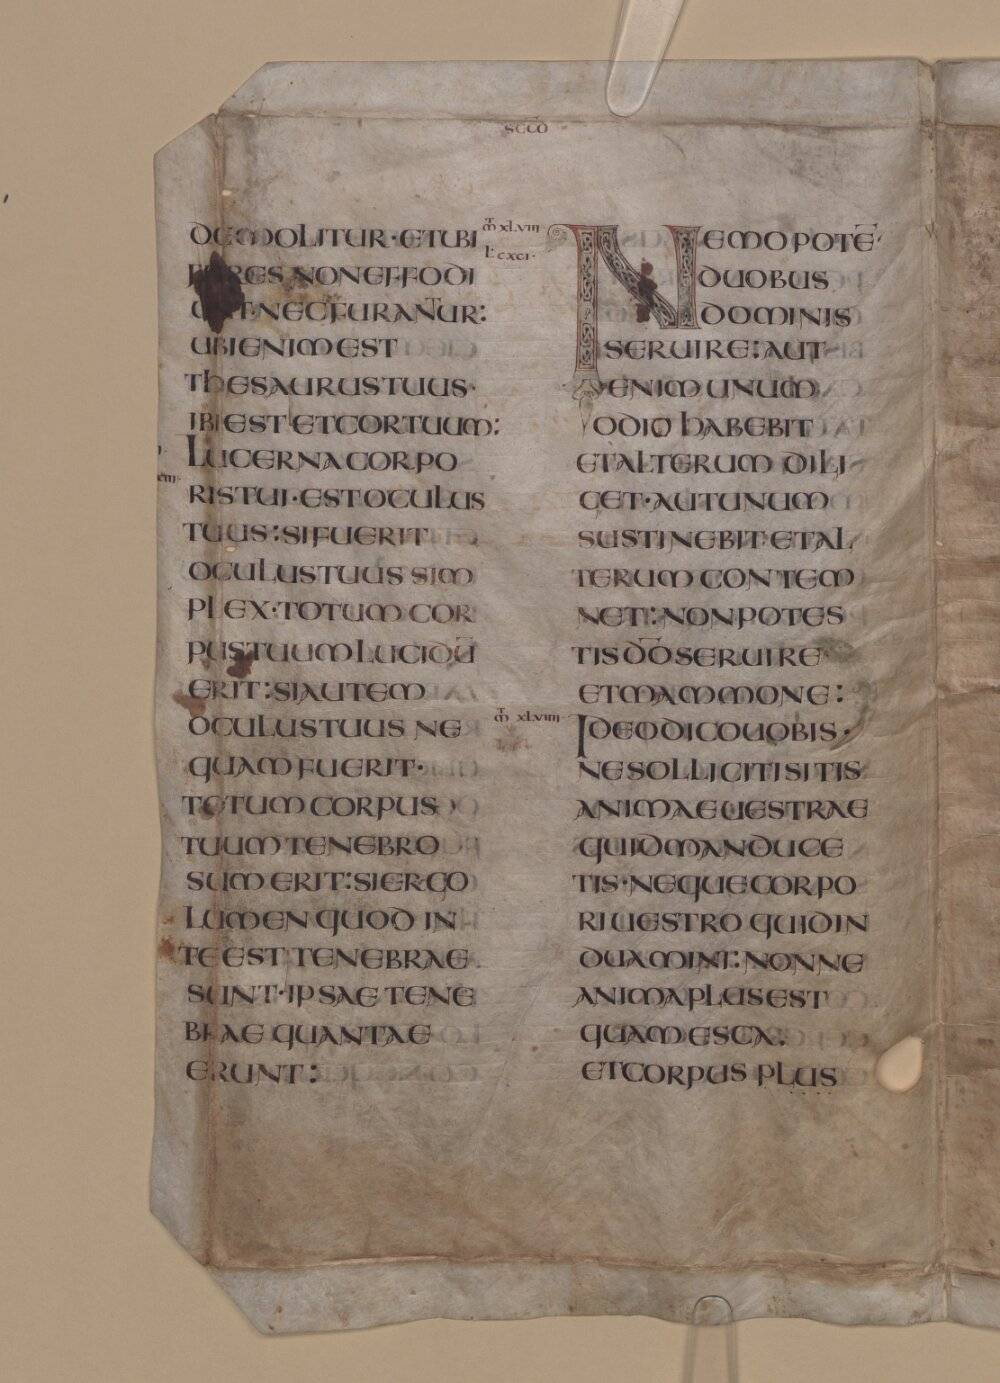 SCCO
DEMOLITUR·ETUBI
FURES NON EFFODI
UNT·NEC FURANTUR:
UBI ENIM EST
THESAURUS TUUS·
IBI EST ET COR TUUM:
LUCERNA CORPO
RIS TUI·EST OCULUS
TUUS: SI FUERIT
OCULUS TUUS SIM
PLEX·TOTUM COR
PUS TUUM LUCIDŪ
ERIT: SI AUTEM
OCULUS TUUS NE
QUAM FUERIT·
TOTUM CORPUS
TUUM TENEBRO
SUM ERIT: SI ERGO
LUMEN QUOD IN
TE EST TENEBRAE
SUNT·IPSAE TENE
BRAE QUANTAE
ERUNT:
m̄ xlviii
L cxci·
NEMO POTĒ·
DUOBUS
DOMINIS
SERUIRE: AUT
ENIM UNUM
ODIO HABEBIT
ET ALTERUM DILI
GET·AUT UNUM
SUSTINEBIT·ET AL
TERUM CONTEM
NET: NON POTES
TIS D̄O SERUIRE
ET MAMMONE:
m̄ xlviiii
IDEO DICO UOBIS·
NE SOLLICITI SITIS
ANIMAE UESTRAE
QUID MANDUCE
TIS·NEQUE CORPO
RI UESTRO QUID IN
DUAMINI: NONNE
ANIMA PLUS EST
QUAM ESCA.
ET CORPUS PLUS